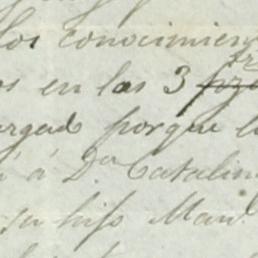 los conocimien
os en las 3
porque l
á Dª Catalin
su hijo Man